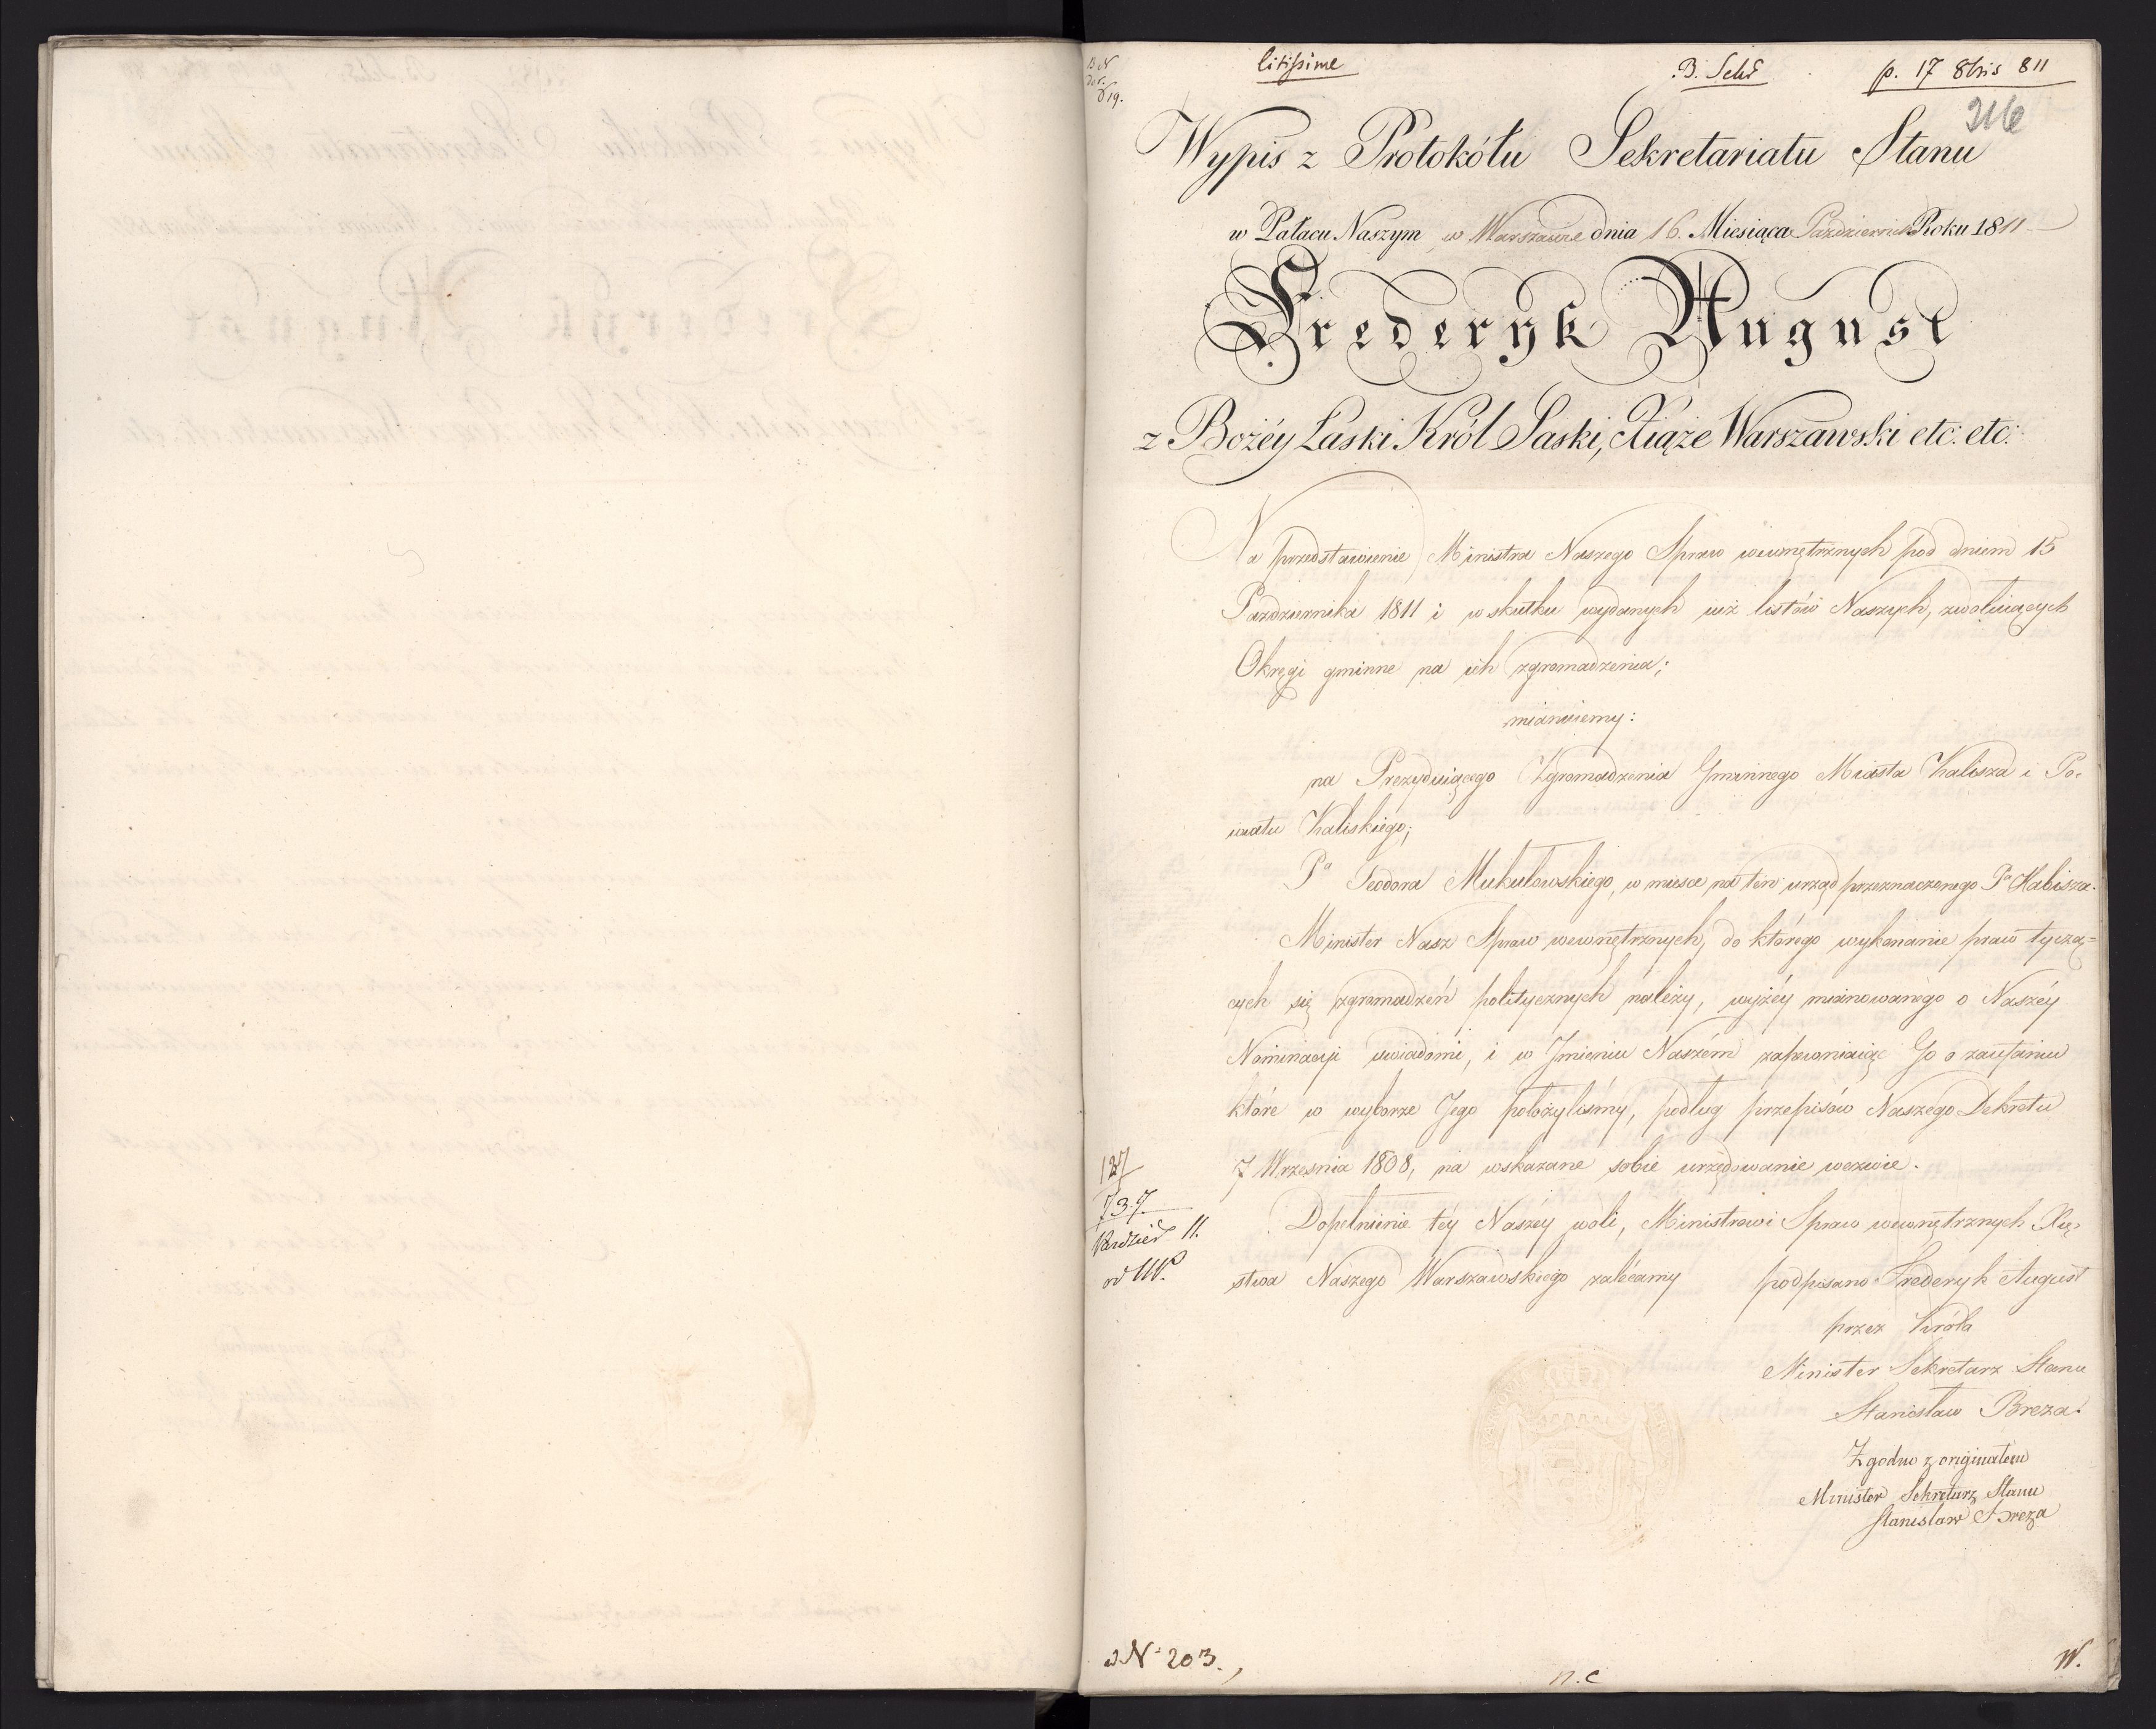 citissime
B. Sekr
p. 17 8bris 811
216
Wypis z Protokółu Sekretariatu Stanu
w Pałacu Naszym w Warszawie dnia 16. Miesiąca Październik Roku 1811
Frederyk August
z Bożéy Łaski Król Saski, Xiąże Warszawski etc: etc:
Na przedstawienie Ministra Naszego Spraw wewnętrznych pod dniem 15
Października 1811 i w skutku wydanych już listów Naszych, zwołuiących
Okręgi gminne na ich zgromadzenia;
mianuiemy:
na Prezyduiącego Zgromadzenia Gminnego Miasta Kalisza i Po-
wiatu Kaliskiego;
Pa Teodora Mukułowskiego, w miesce na ten urząd przeznaczonego Pa Kalisza.
Minister Nasz Spraw wewnętrznych, do którego wykonanie praw tyczą=
cych się zgromadzeń politycznych należy, wyżéy mianowanego o Naszéy
Nominacyi uwiadomi, i w Jmieniu Naszém zapewniaiąc Go o zaufaniu
które w wyborze Jego położyliśmy, podług przepisów Naszego Dekretu
7 Września 1808, na wskazane sobie urzędowanie wezwie.
Dopełnienie téy Naszéy woli, Ministrowi Spraw wewnętrznych Xię-
stwa Naszego Warszawskiego zalecamy podpisano Frederyk August
przez Króla
Minister Sekretarz Stanu
Stanisław Breza.
Zgodno z originałem
Minister Sekretarz Stanu
Stanisław Breza
127
737
Paździer 11.
N: 203.
n.c
W.